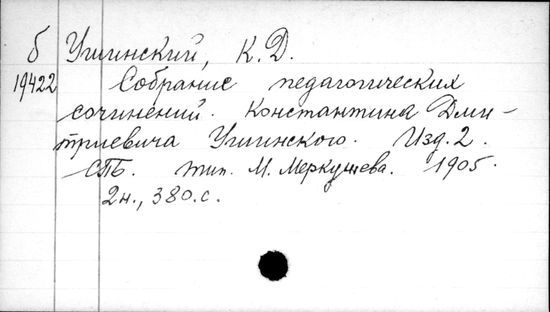 б Ушинский, К.Д.
19422 Собрание педагогических
сочинений. Константина Дми-
триевича Ушинского. Изд. 2.
СПБ. тип. М. Меркушева. 1905.
2н., 380.с.